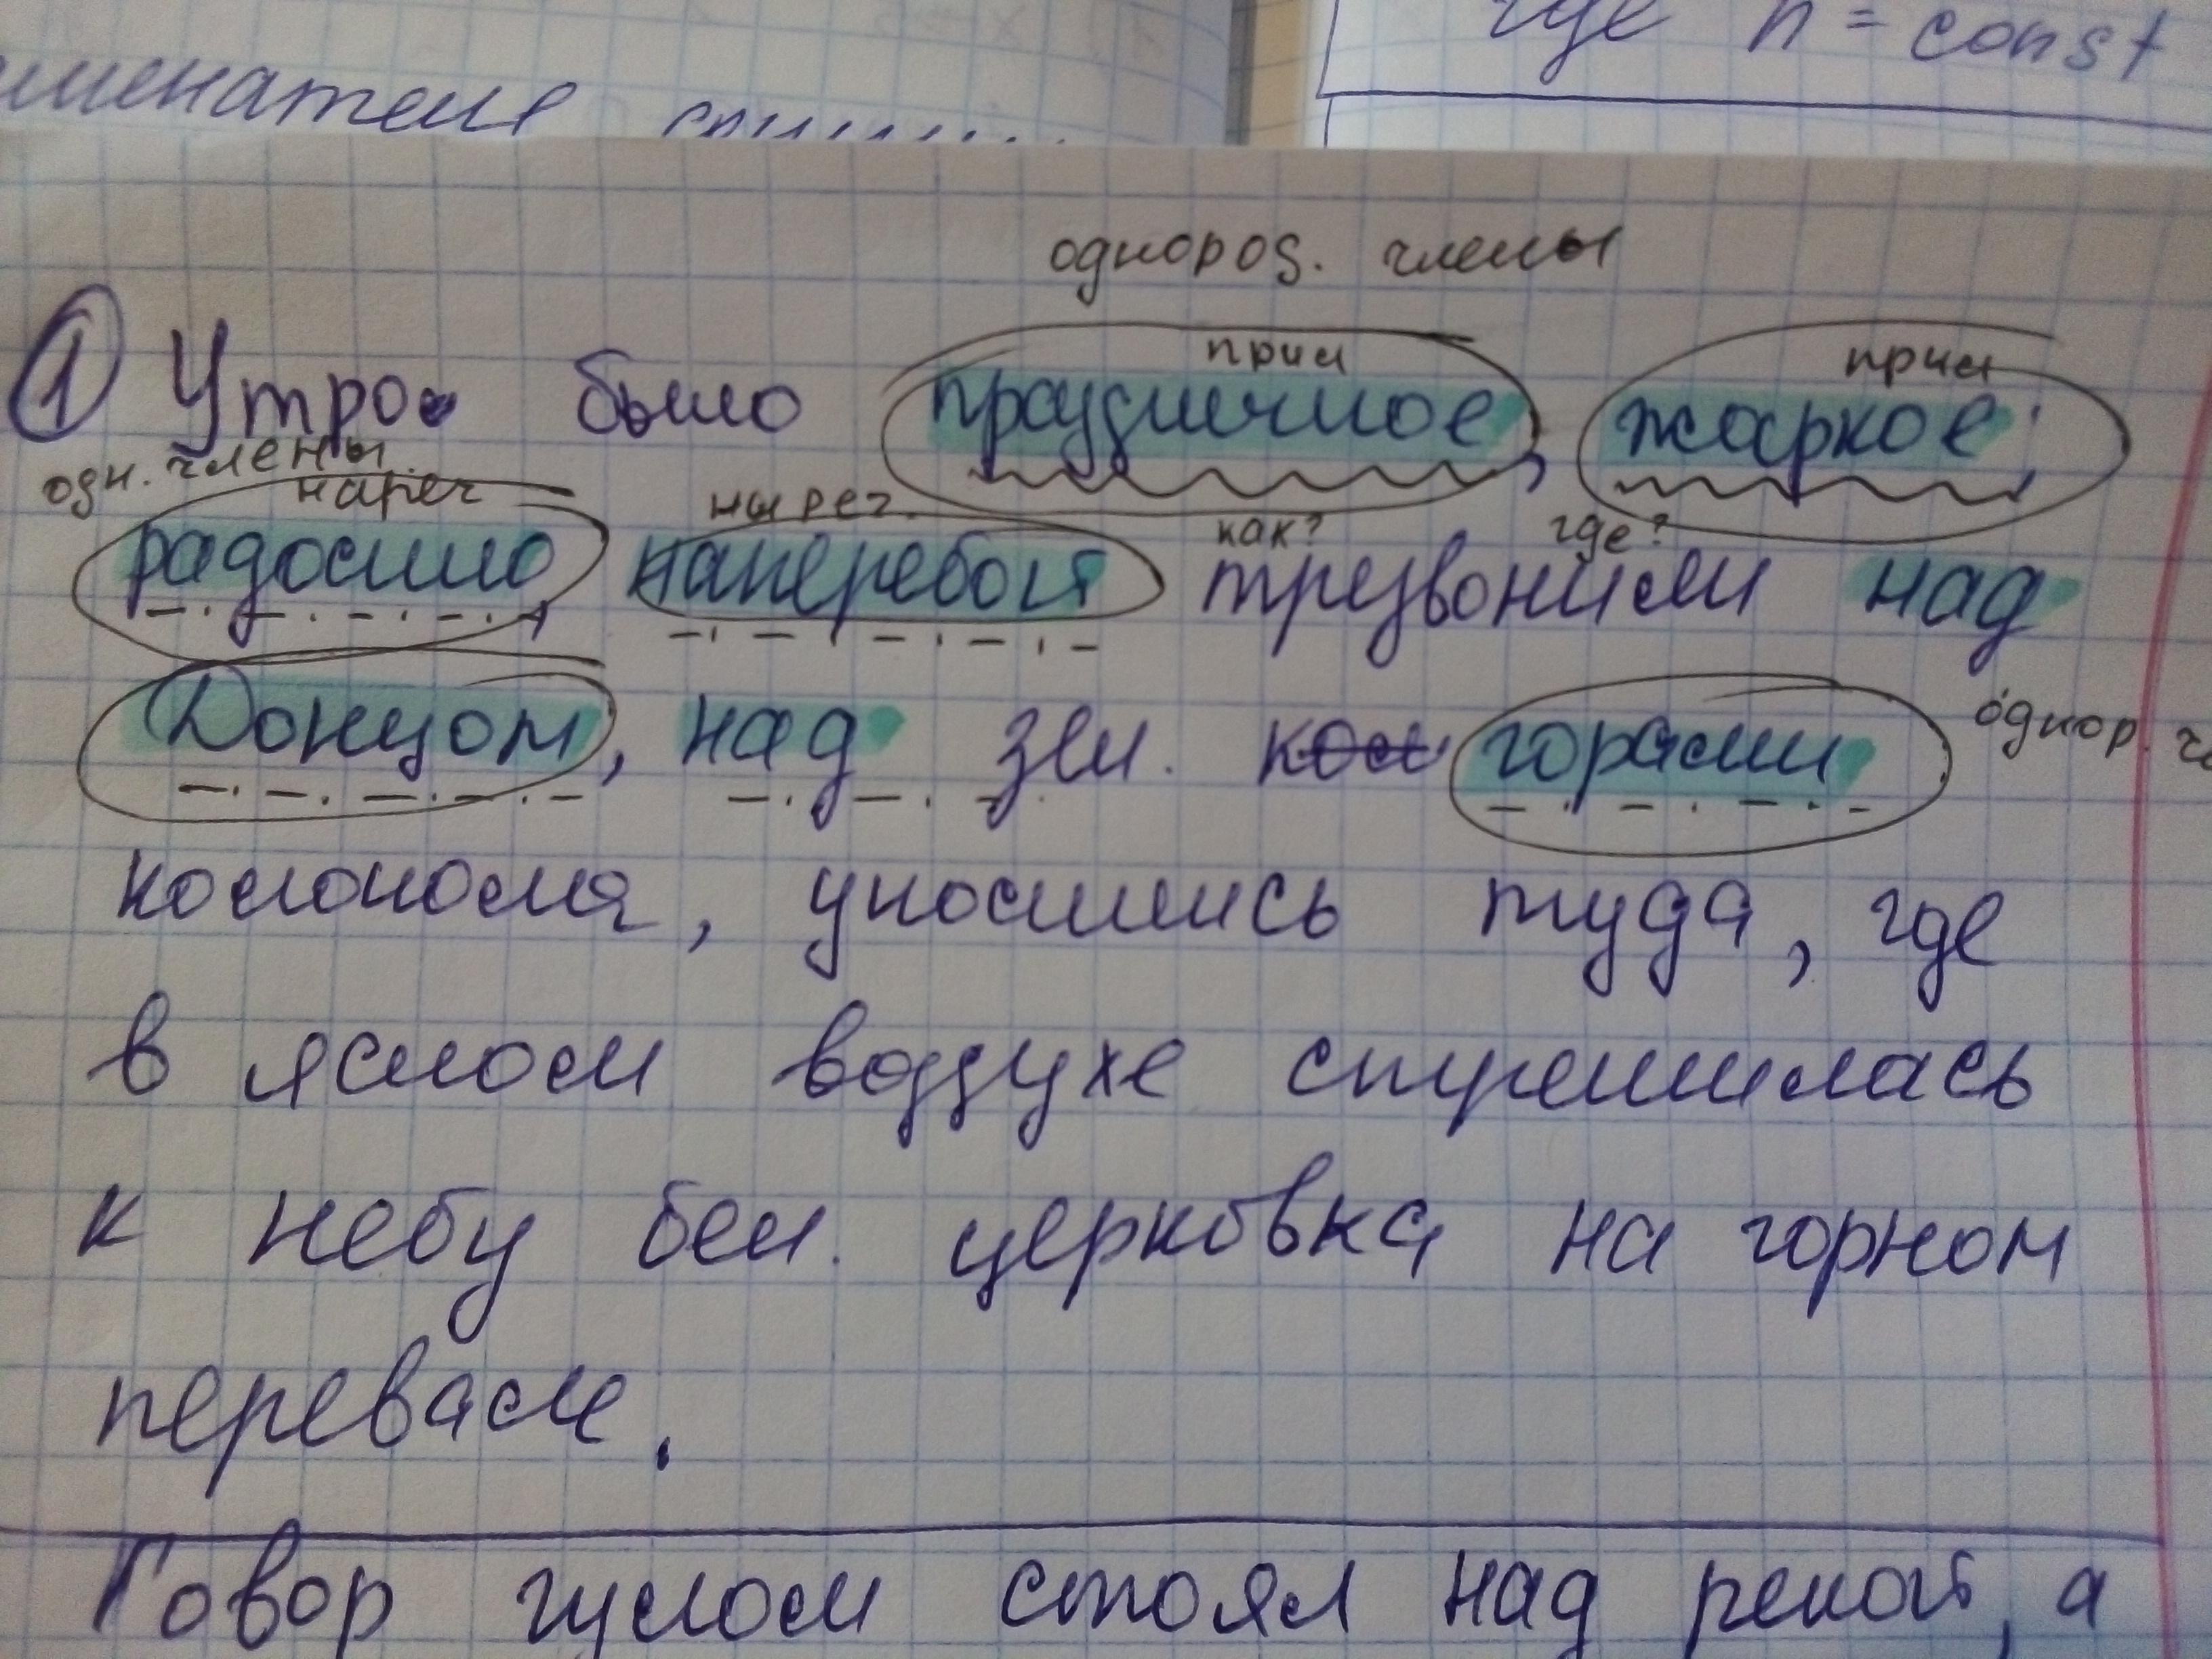 где n = const
менателе
однород. члены
прил прил
① Утро было праздничное, жаркое;
одн. члены
нареч ныреч. как? где?
радостно, наперебой трезвонили над
Донцом, над зел. кол горами однор. ч
колокола, уносились туда, где
в ясном воздухе стремилась
к небу бел. церковка на горном
перевале.
Говор гулом стоял над рекой, а